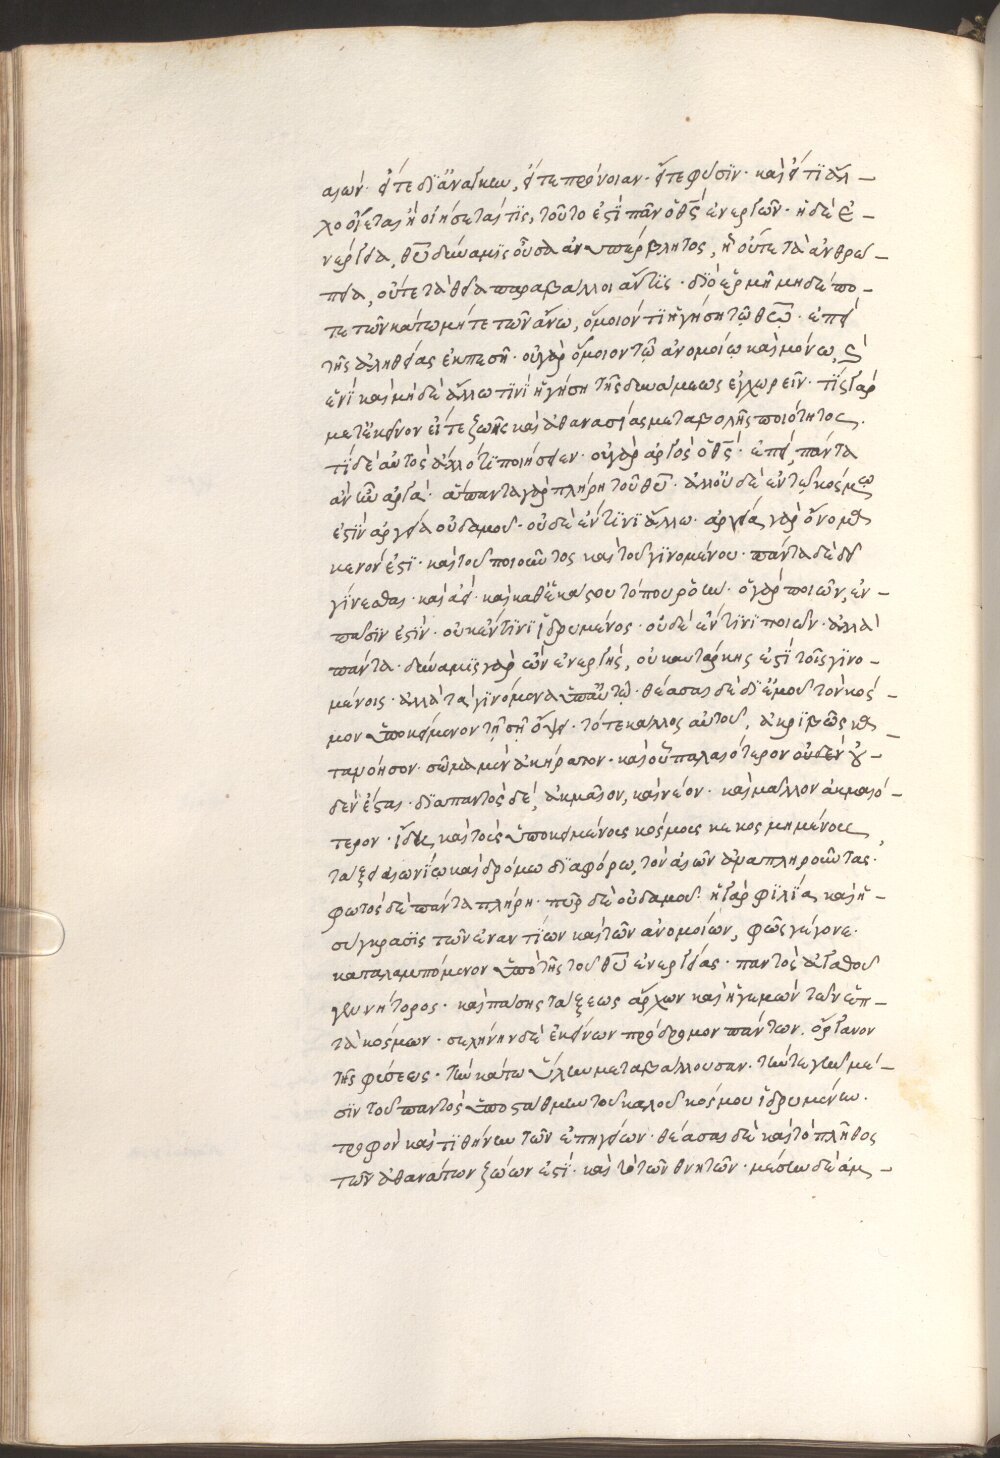 αιών· εἴτε δι᾽ ἀνάγκην, εἴτε πρόνοιαν· εἴτε φύσϊν· καὶ εἴ τϊ ἄλ–
λο οἴεται ἢ οἰήσεταί τϊς, τοῦτο ἐςϊ πᾶν ὁ θς ἐνεργῶν· ἡ δὲ ἐ–
νέργεια, θυ δύναμϊς οὖσα ἀνυπέρβλητος, ᾗ οὔτε τὰ ἀνθρώ–
πεια, οὔτε τὰ θεῖα παραβάλλοι ἄν τϊς· διὸ ἑρμῆ μηδέπο–
τε τῶν κάτω μήτε τῶν ἄνω, ὅμοιόν τϊ ἡγήσῃ τῷ θῶ· ἐπεὶ
τῆς ἀληθείας ἐκπεσῇ· οὐ γὰρ ὅμοιον τῷ ἀνομοίῳ καὶ μόνω, ϛ
ἑνὶ καὶ μηδὲ ἄλλω τϊνὶ ἡγήσῃ τῆς δυνάμεως ἐγχωρεῖν· τίς γὰρ
μετ᾽ ἐκεῖνον ἐί τε ζωῆς καὶ ἀθανασίας μεταβολῆς ποιότητος.
τί δὲ αὐτὸς ἄλλό τϊ ποιήσειεν· οὐ γὰρ ἀργὸς ὁ θς· ἐπεὶ, πάντα
ἀν ἦν ἀργά· ἅπαντα γὰρ πλήρη τοῦ θυ· ἀλλ᾽ οὐδὲ ἐν τῷ κόσμω
ἐςὶν ἀργεία οὐδαμοῦ· οὐδὲ ἔν τϊνϊ ἄλλω· ἀργεία, γὰρ ὄνομα
κενόν ἐςϊ· καὶ τοῦ ποιοῦντος καὶ τοῦ γϊνομένου· πάντα δὲ δεῖ
γίνεσθαι· καὶ ἀεὶ· καὶ καθ᾽ ἑκάςου τόπου ῥοπήν· ὁ γὰρ ποιῶν, ἐν–
πᾶσϊν ἐςὶν· οὐκ ἔν τϊνϊ ἱδρυμένος· οὐδὲ ἔν τϊνϊ ποιῶν· ἀλλὰ
πάντα· δύναμϊς γὰρ ὢν ἐνεργὴς, οὐκ αὐτάρκης ἐςὶ τοῖς γϊνο–
μένοις· ἀλλὰ τὰ γϊνόμενα ὑπ᾽ αὐτῷ· θέασαι δὲ δϊ᾽ ἐμοῦ τὸν κόσ–
μον ὑποκείμενον τῇ σῇ ὄψει· τό τε κάλλος αὐτοῦ, ἀκρϊβῶς κα–
τανόησον· σῶμα μὲν ἀκήρατον· καὶ οὗ παλαιότερον οὐδὲν οὐ–
δὲν ἔςαι· δϊαπαντὸς δέ, ἀκμαῖον, καὶ νέον· καὶ μᾶλλον ἀκμαιό–
τερον· ἴδε, καὶ τοὺς ὑποκειμένους κόσμους κεκοσμημένους
τάξει αἰωνίω καὶ δρόμω δϊαφόρω, τὸν αἰῶν ἀναπληροῦντας·
φωτὸς δὲ πάντα πλήρη· πῦρ δὲ οὐδαμοῦ· ἡ γὰρ φϊλϊα, καὶ ἡ–
σύγκρασϊς τῶν ἐναντϊων καὶ τῶν ἀνομοίων, φῶς γέγονε·
καταλαμπόμενον ὑπὸ τῆς τοῦ θυ ἐνεργείας· παντὸς ἀγαθοῦ
γεννήτορος· καὶ πάσης τάξεως ἄρχων καὶ ἡγεμὼν τῶν ἑπ–
τὰ κόσμων· σελήνην δὲ ἐκείνων πρόδρομον πάντων. ὄργανον
τῆς φύσεως· τὴν κάτω ὕλην μεταβάλλουσαν. τήν τε γῆν μέ–
σϊν τοῦ παντὸς ὑποςάθμην τοῦ καλοῦ κόσμου ἱδρυμένην·
τροφὸν καὶ τϊθήνην τῶν ἐπιγείων· θέασαι δὲ καὶ τὸ πλῆθος
τῶν ἀθανάτων ζώων ἐςί· καὶ τὸ τῶν θνητῶν· μέσην δὲ ἀμ–